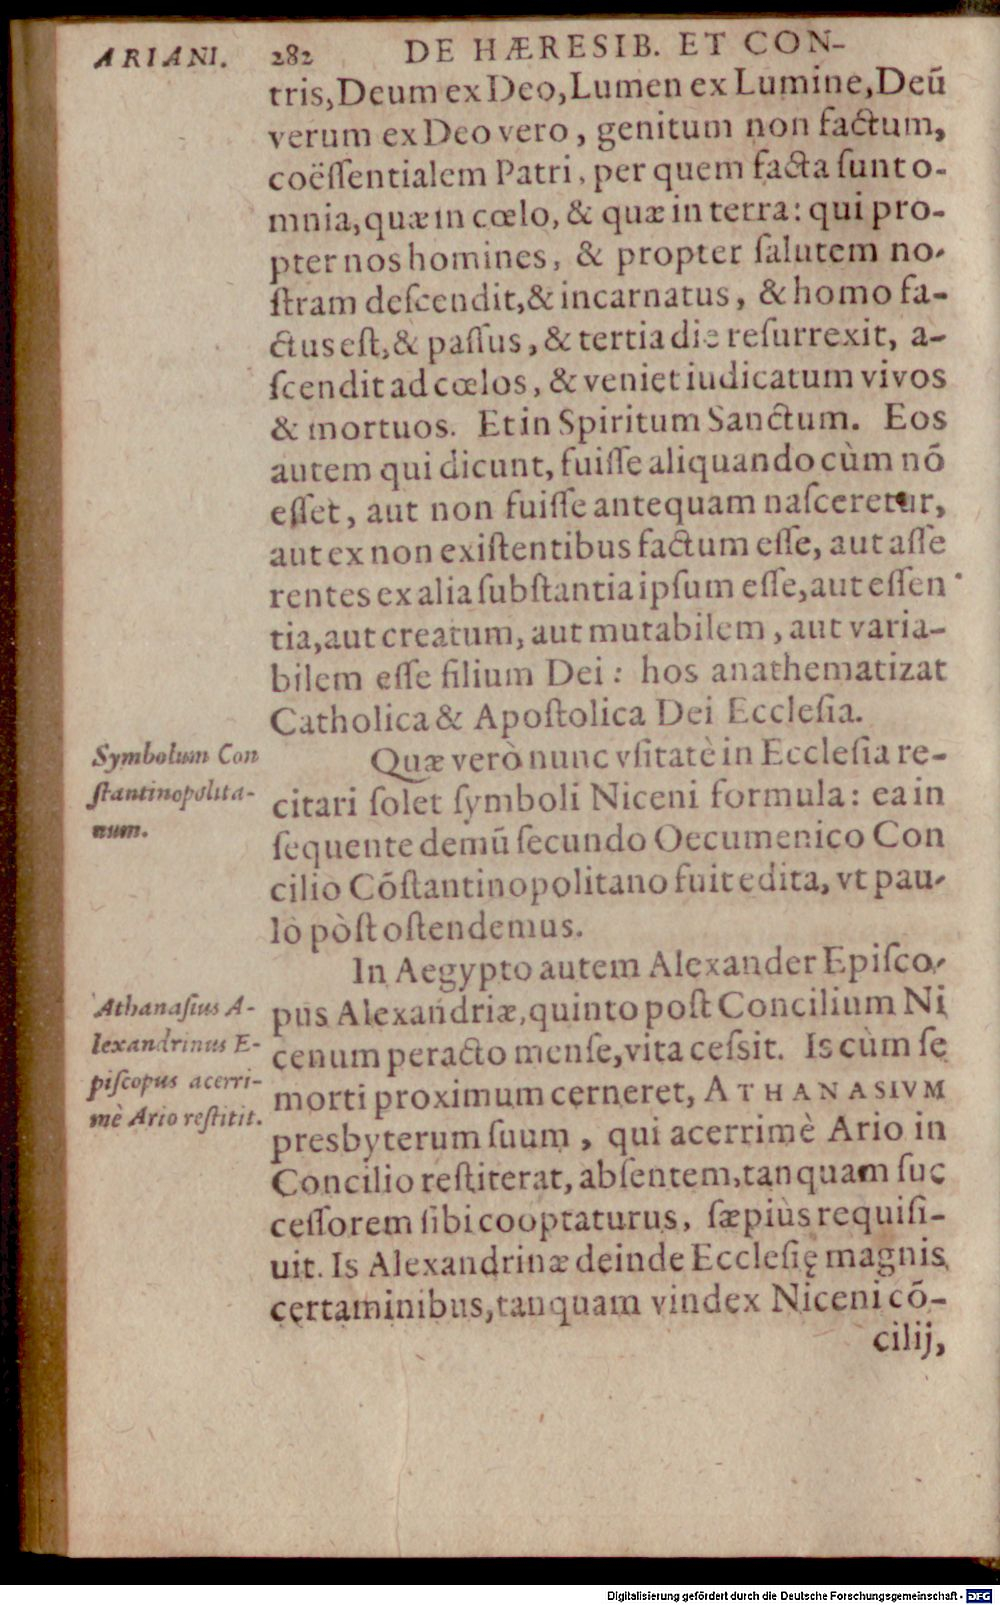 ARIANI. 282 DE HÆRESIB. ET CON-
tris, Deum ex Deo, Lumen ex Lumine, Deũ
verum ex Deo vero, genitum non factum,
coëſſentialem Patri, per quem facta ſunt o-
mnia, quæ in cœlo, & quæ in terra: qui pro-
pter nos homines, & propter ſalutem no-
ſtram deſcendit, & incarnatus, & homo fa-
ctus eſt, & paſſus, & tertia die reſurrexit, a-
ſcendit ad cœlos, & veniet iudicatum vivos
& mortuos. Et in Spiritum Sanctum. Eos
autem qui dicunt, fuiſſe aliquando cùm nõ
eſſet, aut non fuiſſe antequam naſceretur,
aut ex non exiſtentibus factum eſſe, aut aſſe
rentes ex alia ſubſtantia ipſum eſſe, aut eſſen
tia, aut creatum, aut mutabilem, aut varia-
bilem eſſe filium Dei: hos anathematizat
Catholica & Apoſtolica Dei Eccleſia.
Symbolum Con
ſtantinopolita-
num.
Quæ verò nunc vſitatè in Eccleſia re-
citari ſolet ſymboli Niceni formula: ea in
ſequente demũ ſecundo Oecumenico Con
cilio Cõſtantinopolitano fuit edita, vt pau-
lò pòſt oſtendemus.
Athanaſius A-
lexandrinus E-
piſcopus acerri-
mè Ario reſtitit.
In Aegypto autem Alexander Epiſco-
pus Alexandriæ, quinto poſt Concilium Ni
cenum peracto menſe, vita ceſsit. Is cùm ſe
morti proximum cerneret, ATHANASIVM
presbyterum ſuum, qui acerrimè Ario in
Concilio reſtiterat, abſentem, tanquam ſuc
ceſſorem ſibi cooptaturus, ſæpiùs requiſi-
uit. Is Alexandrinæ deinde Eccleſię magnis
certaminibus, tanquam vindex Niceni cõ-
cilij,
Digitalisierung gefördert durch die Deutsche Forschungsgemeinschaft - DFG